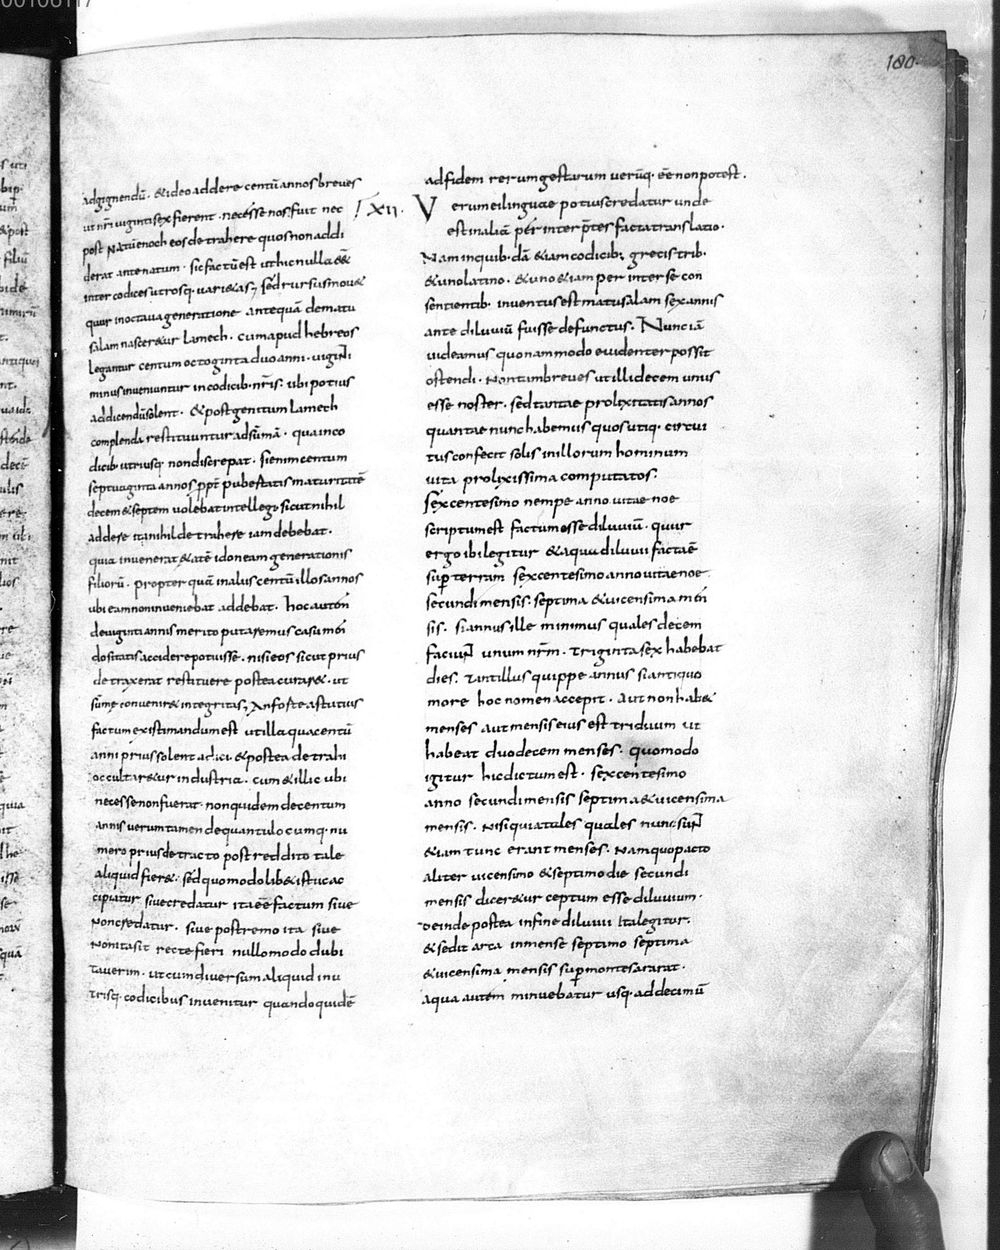 180.
adgignendū. &ideo addere centū annos breves
ut nr̄i viginti sex fierent. necesse nos fuit nec
post natū enoch eos detrahere quos non addi
derat ante natum. sic factū est ut hic nulla ēē&
inter codices utrosq. vari&as; sed rursus mov&
quur in octava generatione antequā dematu
salam nascer&ur lamech. cum apud hebreos
legantur centum octoginta duo anni. viginti
minus inveniuntur in codicib. nr̄is. ubi potius
addicendū solent. &post genitum lamech
complenda restituuntur ad sūmā. qua in co
dicib. utriusq. non discrepat. si enim centum
septuaginta annos ppt̄ pubertatis maturitatē
decem &septem volebat intellegi sicut nihil
addere ita nihil detrahere iam debebat.
quia invenerat &atē idoneam generationis
filiorū. propter quā in alus centū illos annos
ubi eam non inveniebat addebat. hoc autem
de viginti annis merito putaremus casu mēn
dositatis accidere potuisse. nisi eos sicut prius
detraxerat restituere postea curar&. ut
sūme convenir& integritas; An forte astutius
factum existimandum est ut illa qua centū
anni prius solent adici &postea detrahi
occultar&ur industria. cum &illic ubi
necesse non fuerat. non quidem de centum
annis verum tamen de quantulocumq. nu
mero prius detracto post reddito tale
aliquid fier&. sed quomodolib& istuc ac
cipiatur sive credatur ita ēē factum sive
non credatur. sive postremo ita sive
non ita sit recte fieri nullo modo dubi
taverim. ut cum diversum aliquid in u
trisq. codicibus invenitur quandoquidē
ad fidem rerum gestarum verūq. ēē non potest.
XII. Verum ei linguae potius credatur unde
est in aliā per interp̄tes facta translatio.
Nam in quib.dā &iam codicib; grecis trib.
&uno latino. &uno &iam per inter se con
sentientib. inventus est matusalam sex annis
ante diluviū fuisse defunctus. Nunc iā
videamus quonam modo evidenter possit
ostendi. non tam breves ut illi decem unus
esse noster. sed tantae prolixitatis annos
quantae nunc habemus quos utiq. circui
tus confecit solis in illorum hominum
vita prolixissima computatos.
Sexcentesimo nempe anno vitae noe
scriptum est factum esse diluviū. quur
ergo ibi legitur &aqua diluvii facta ē
sup̄ terram sexcentesimo anno vitae noe.
secundi mensis. septima &vicensima mēn
sis. si annus ille minimus quales decem
faciunt unum nr̄m. triginta sex habebat
dies. tantillus quippe annus si antiquo
more hoc nomen accepit. aut non hab&
menses aut mensis eius est triduum ut
habeat duodecem menses. quomodo
igitur hic dictum est. sexcentesimo
anno secundi mensis septima &vicensima
mensis. nisi quia tales quales nunc sunt
&iam tunc erant menses. nam quo pacto
aliter vicensimo &septimo die secundi
mensis dicer&ur ceptum esse diluvium.
deinde postea in fine diluvii ita legitur.
&sedit arca in mense septimo septima
&vicensima mensis sup̄ montes ararat.
aqua autem minuebatur usq. ad decimū